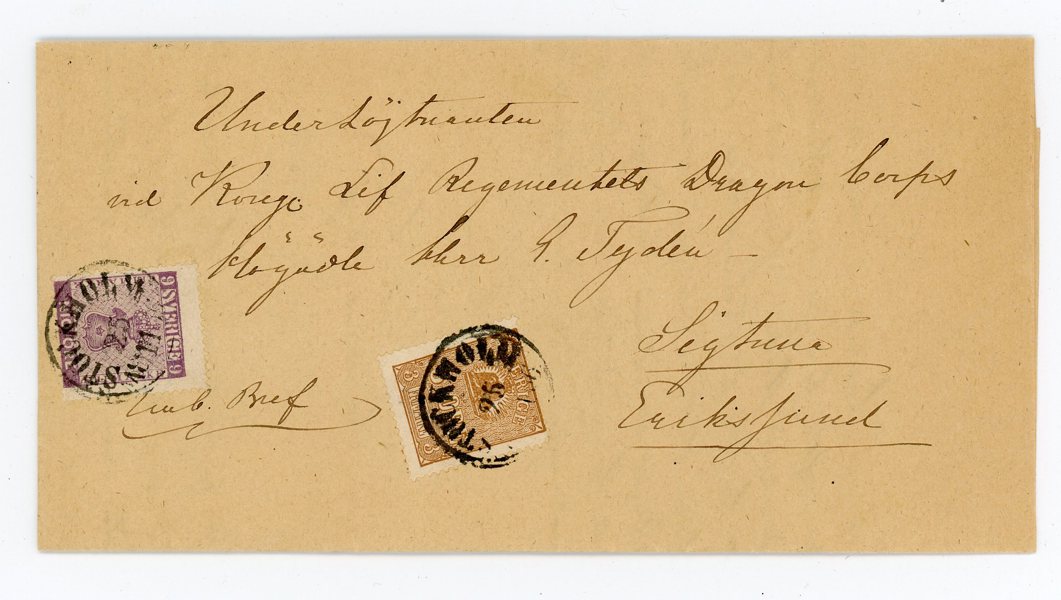 Underlöjtnanten
vid Kongl. Lif Regementets Dragon Corps
Högädle Herr G. Tydén –
Sigtuna
Erikssund
Emb. Bref
STOCKHOLM
25
9 SVERIGE 9
STOCKHOLM
26
SVERIGE
3
3